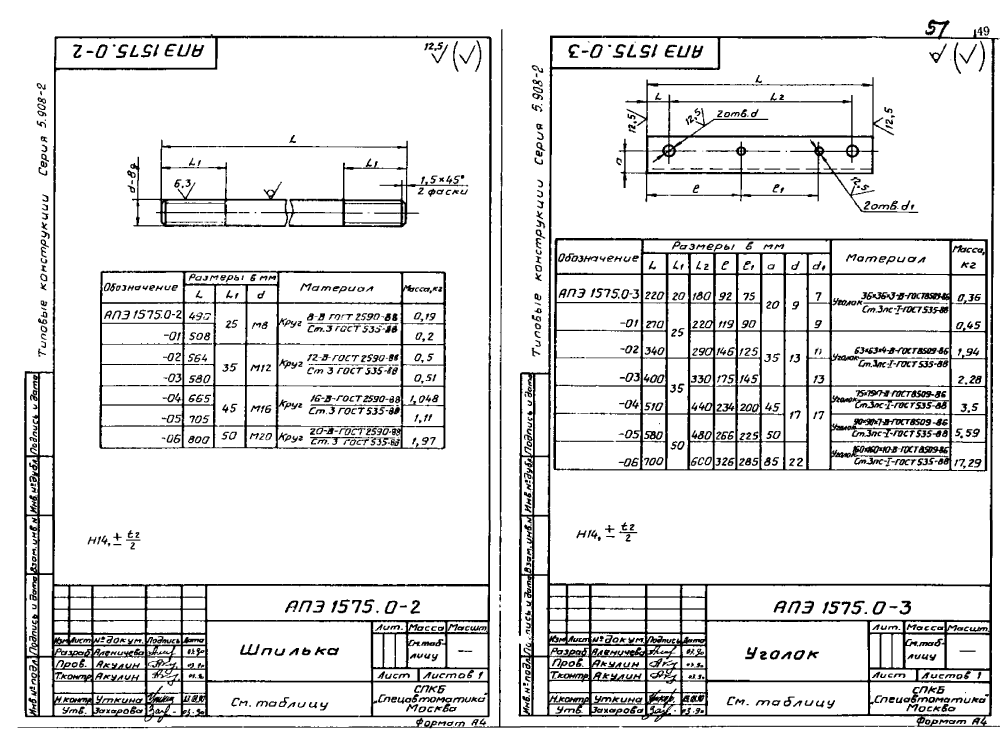 57 49
АПЭ 1575.0-2
12,5 (√)
Типовые конструкции Серия 5.908-2
L
L1 L1
d-8g
6,3
1,5×45°
2 фаски
Обозначение Размеры в мм Материал Масса, кг
L L1 d
АПЭ 1575.0-2 490 25 М8 Круг 8-В ГОСТ 2590-88 / Ст. 3 ГОСТ 535-88 0,19
-01 508 0,2
-02 564 35 М12 Круг 12-В-ГОСТ 2590-88 / Ст 3 ГОСТ 535-88 0,5
-03 580 0,51
-04 665 45 М16 Круг 16-В-ГОСТ 2590-88 / Ст. 3 ГОСТ 535-88 1,048
-05 705 1,11
-06 800 50 М20 Круг 20-В-ГОСТ 2590-88 / Ст. 3 ГОСТ 535-88 1,97
H14, ± t2/2
Инв.№подл. Подпись и дата Взам.инв.№ Инв.№дубл. Подпись и дата
АПЭ 1575.0-2
Изм Лист № докум. Подпись Дата
Разраб Аленичева
Пров. Акулин
Т.контр Акулин
Н.контр Уткина
Утв. Захарова
Шпилька
Лит. Масса Масшт.
См.таблицу —
Лист Листов 1
См. таблицу
СПКБ
„Спецавтоматика"
Москва
Формат А4
АПЭ 1575.0-3
(√)
Типовые конструкции Серия 5.908-2
L
L L2
12,5 12,5 2 отв. d 12,5
a
ℓ ℓ1
12,5
2 отв. d1
Обозначение Размеры в мм Материал Масса, кг
L L1 L2 ℓ ℓ1 a d d1
АПЭ 1575.0-3 220 20 180 92 75 20 9 7 Уголок 36×36×3-В-ГОСТ 8509-86 / Ст.3пс-I-ГОСТ 535-88 0,36
-01 270 25 220 119 90 9 0,45
-02 340 290 146 125 35 13 11 Уголок 63×63×4-В-ГОСТ 8509-86 / Ст.3пс-I-ГОСТ 535-88 1,94
-03 400 35 330 175 145 13 2,28
-04 510 440 234 200 45 17 17 Уголок 75×75×7-В ГОСТ 8509-86 / Ст.3пс-I-ГОСТ 535-88 3,5
-05 580 50 480 266 225 50 90×90×7-В-ГОСТ 8509-86 / Ст.3пс-I-ГОСТ 535-88 5,59
-06 700 600 326 285 85 22 Уголок 160×160×10-В-ГОСТ 8509-86 / Ст.3пс-I-ГОСТ 535-88 17,29
H14, ± t2/2
Инв.№подл. Подпись и дата Взам.инв.№ Инв.№дубл. Подпись и дата
АПЭ 1575.0-3
Изм Лист № докум. Подпись Дата
Разраб Аленичева
Пров. Акулин
Т.контр Акулин
Н.контр Уткина
Утв. Захарова
Уголок
Лит. Масса Масшт.
См.таблицу —
Лист Листов 1
См. таблицу
СПКБ
„Спецавтоматика"
Москва
Формат А4